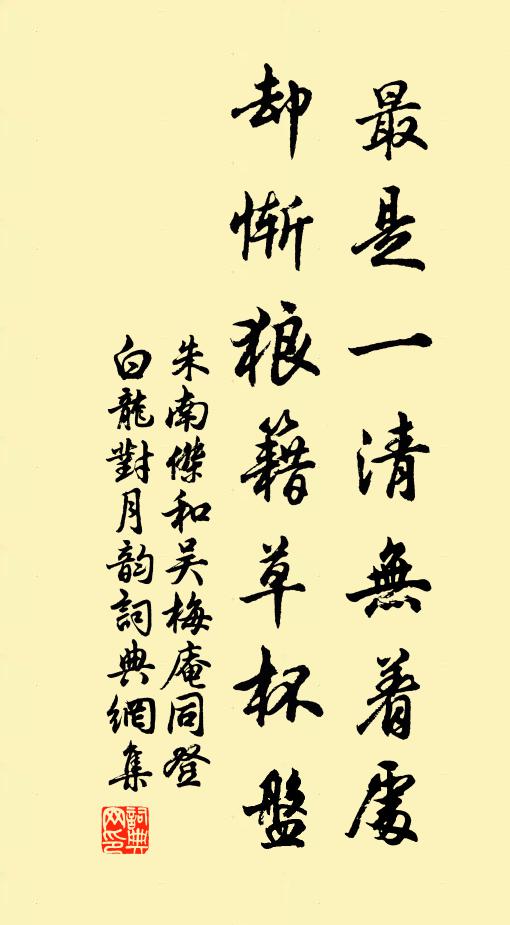 最是一清無着處
却慚狼籍草杯盤
朱南傑和吴梅庵同登
白龍對月韵詞典網集
詞典
网印